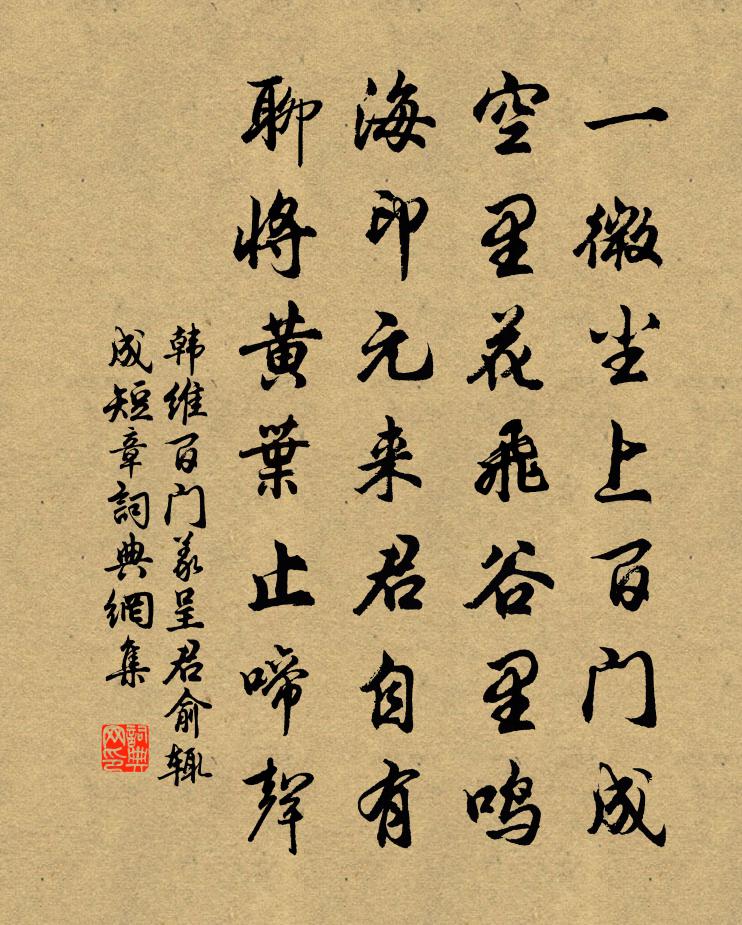 一微尘上百门成
空里花飛谷里鸣
海印元来君自有
聊将黄葉止啼聲
韩维百门義呈君俞辄
成短章詞典網集
詞典
网印